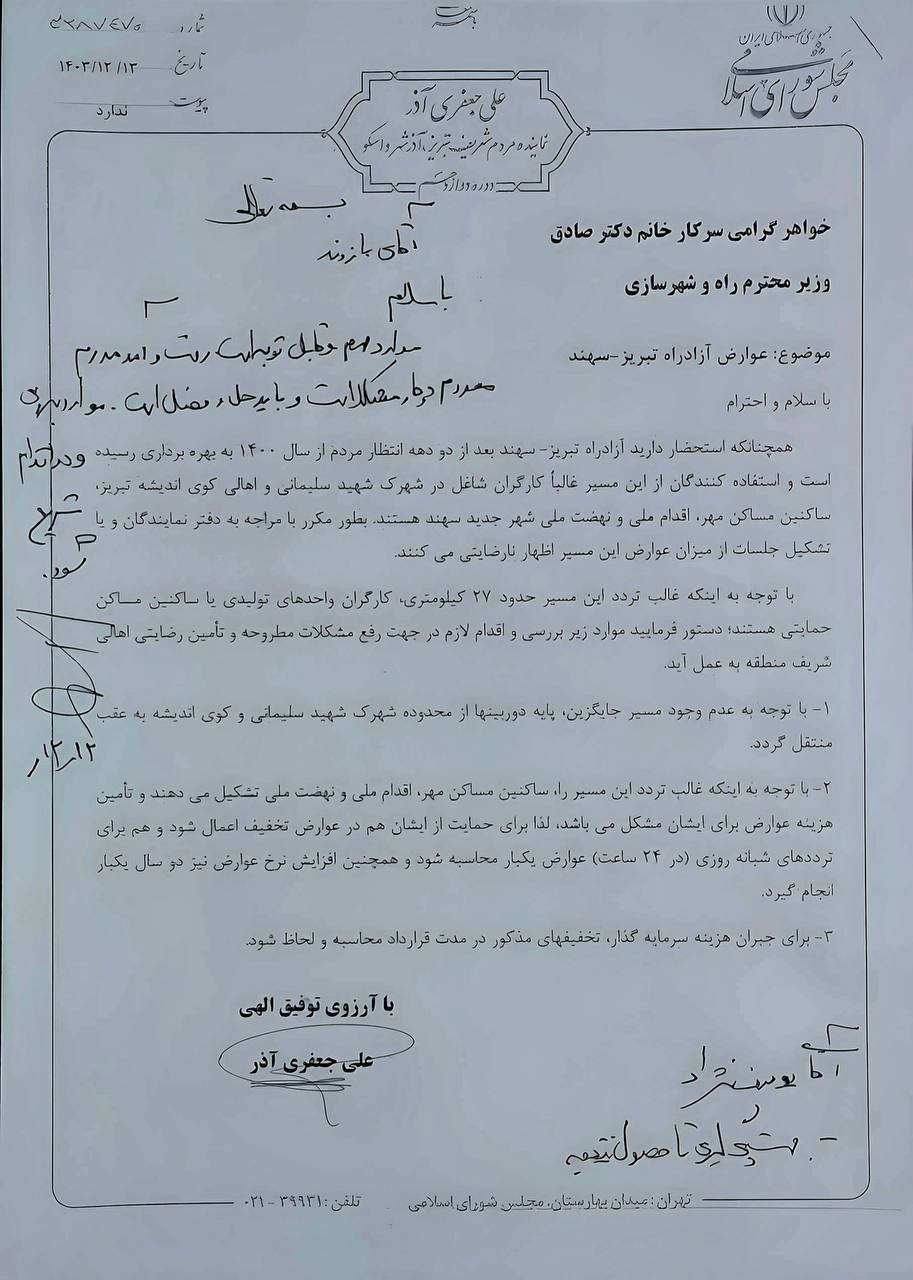 باسمه تعالی
جمهوری اسلامی ایران
مجلس شورای اسلامی
شماره
تاریخ ۱۴۰۳/۱۲/۱۳
پیوست ندارد
علی جعفری آذر
نماینده مردم شریف تبریز، آذرشهر و اسکو
دوره دوازدهم
بسمه تعالی
آقای بازوند
با سلام
موارد مهم و قابل توجه است رفت و آمد مردم
مردم دچار مشکل است و باید حل و فصل است. موارد بررسی
و در اقدام
تسریع
شود.
۱۲/۱۳
خواهر گرامی سرکار خانم دکتر صادق
وزیر محترم راه و شهرسازی
موضوع: عوارض آزادراه تبریز-سهند
با سلام و احترام
همچنانکه استحضار دارید آزادراه تبریز- سهند بعد از دو دهه انتظار مردم از سال ۱۴۰۰ به بهره برداری رسیده
است و استفاده کنندگان از این مسیر غالباً کارگران شاغل در شهرک شهید سلیمانی و اهالی کوی اندیشه تبریز،
ساکنین مساکن مهر، اقدام ملی و نهضت ملی شهر جدید سهند هستند. بطور مکرر با مراجه به دفتر نمایندگان و یا
تشکیل جلسات از میزان عوارض این مسیر اظهار نارضایتی می کنند.
با توجه به اینکه غالب تردد این مسیر حدود ۲۷ کیلومتری، کارگران واحدهای تولیدی یا ساکنین مساکن
حمایتی هستند؛ دستور فرمایید موارد زیر بررسی و اقدام لازم در جهت رفع مشکلات مطروحه و تأمین رضایتی اهالی
شریف منطقه به عمل آید.
۱- با توجه به عدم وجود مسیر جایگزین، پایه دوربینها از محدوده شهرک شهید سلیمانی و کوی اندیشه به عقب
منتقل گردد.
۲- با توجه به اینکه غالب تردد این مسیر را، ساکنین مساکن مهر، اقدام ملی و نهضت ملی تشکیل می دهند و تأمین
هزینه عوارض برای ایشان مشکل می باشد، لذا برای حمایت از ایشان هم در عوارض تخفیف اعمال شود و هم برای
ترددهای شبانه روزی (در ۲۴ ساعت) عوارض یکبار محاسبه شود و همچنین افزایش نرخ عوارض نیز دو سال یکبار
انجام گیرد.
۳- برای جبران هزینه سرمایه گذار، تخفیفهای مذکور در مدت قرارداد محاسبه و لحاظ شود.
با آرزوی توفیق الهی
علی جعفری آذر
آقای یوسف نژاد
- پیگیری تا حصول نتیجه
تهران: میدان بهارستان، مجلس شورای اسلامی تلفن: ۳۹۹۳۱ - ۰۲۱